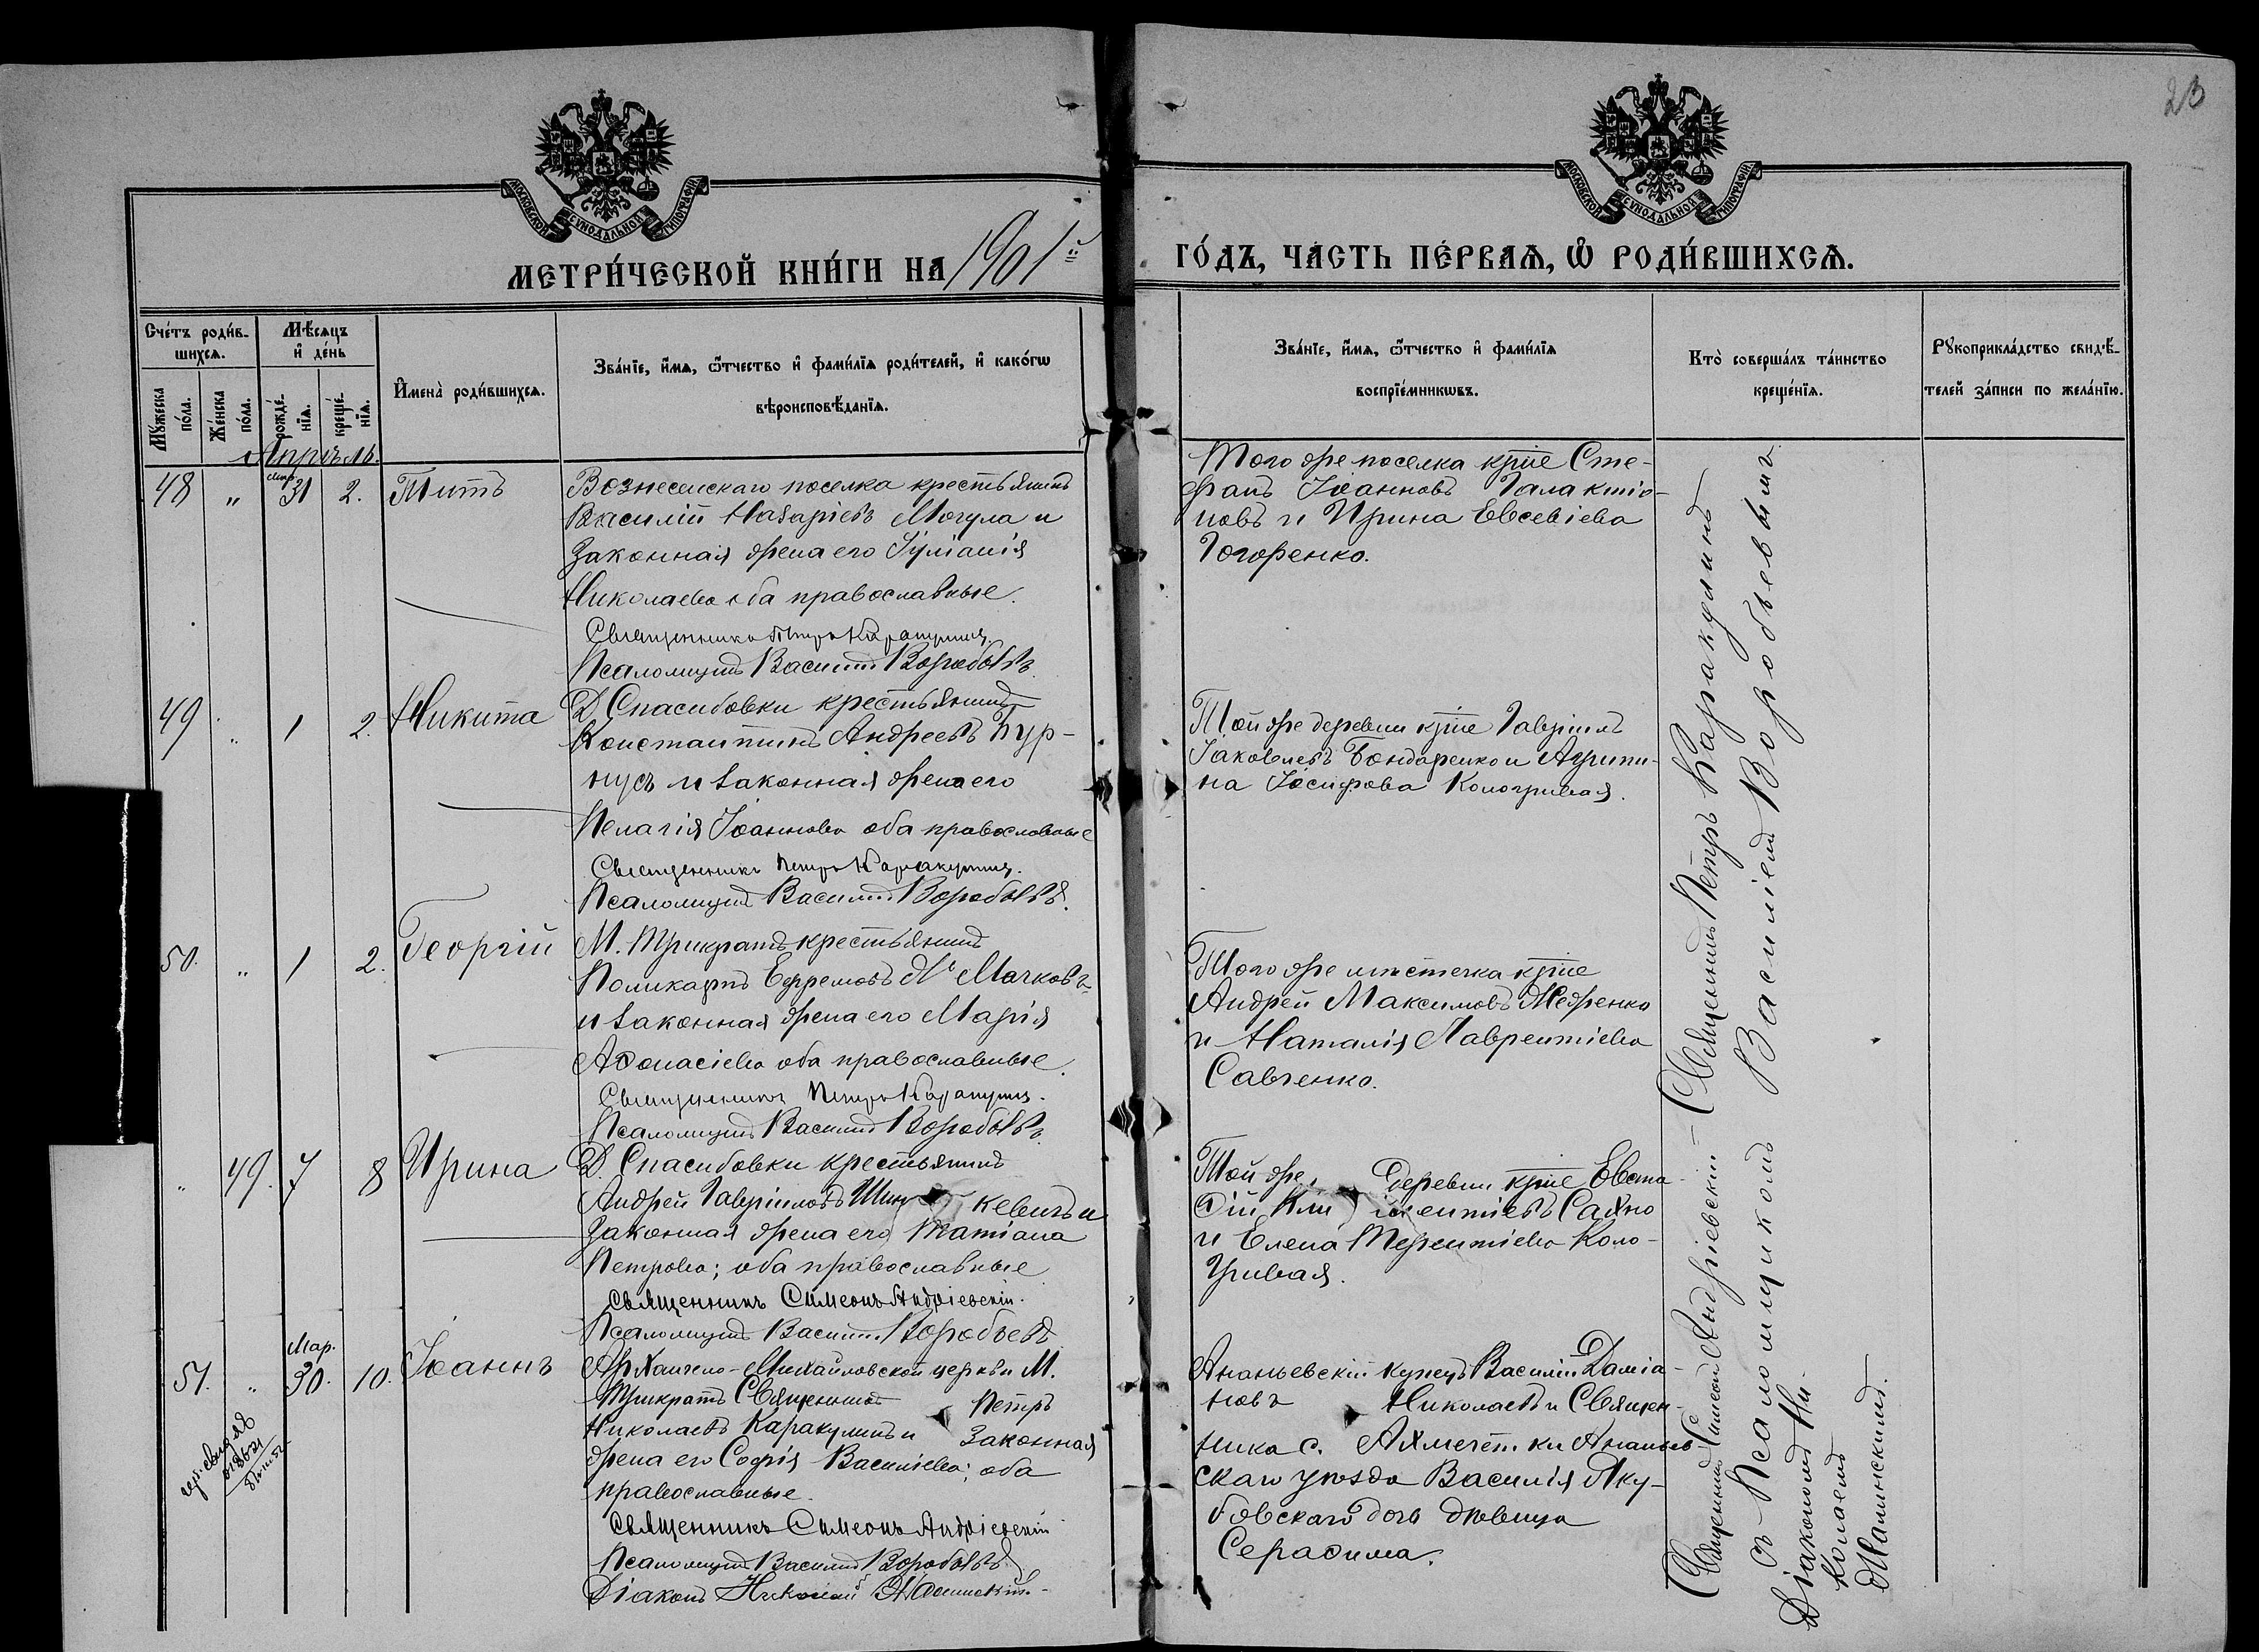 23
МОСКОВСКОЙ СѴНОДАЛЬНОЙ ТИПОГРАФІИ
МОСКОВСКОЙ СѴНОДАЛЬНОЙ ТИПОГРАФІИ
МЕТРИ́ЧЕСКОЙ КНИ́ГИ НА 1901й
ГО́ДЪ, ЧА́СТЬ ПЕ́РВАѦ, Ѡ РОДИ́ВШИХСѦ.
Сче́тъ роди́в-
шихсѧ.
Мѣ́сѧцъ
и де́нь
Мꙋ́жеска
по́ла.
Же́нска
по́ла.
рожде́-
нїѧ.
креще́-
нїѧ.
И҆мена̀ роди́вшихсѧ.
Зва́нїе, и҆́мѧ, ѻ҆́тчество и҆ фами́лїѧ роди́телей, и҆ како́гѡ
вѣроисповѣ́данїѧ.
Зва́нїе, и҆́мѧ, ѻ҆́тчество и҆ фами́лїѧ
воспрїе́мникѡвъ.
Кто̀ соверша́лъ та́инство
креще́нїѧ.
Рꙋкоприкла́дство свидѣ́-
телей за́писи по жела́нїю.
Апрѣль.
48 " Мар. 31 2. Титъ
Вознесенскаго поселка крестьянинъ
Василій Назаріевъ Могула и
законная жена его Іуліанія
Николаева оба православные.
Священникъ Петръ Каракулинъ.
Псаломщикъ Василій Воробьевъ.
Того же поселка кр-не Сте-
фанъ Іоанновъ Галактіо-
новъ и Ирина Евсевіева
Гогоренко.
49 " 1 2. Никита
Д. Спасибовки крестьянинъ
Константинъ Андреевъ Бур-
нусъ и законная жена его
Пелагія Іоаннова оба православные
Священникъ Петръ Каракулинъ.
Псаломщикъ Василій Воробьевъ.
Той же деревни кр-не Гавріилъ
Іаковлевъ Бондаренко и Агрипи-
на Іосифова Кологривая.
50. " 1 2. Георгій
М. Трикратъ крестьянинъ
Поликарпъ Ефремовъ Мачковъ
и законная жена его Марія
Аѳонасіева оба православные.
Священникъ Петръ Каракулинъ.
Псаломщикъ Василій Воробьевъ.
Того же мѣстечка кр-не
Андрей Максимовъ Жедренко
и Наталія Лаврентіева
Савченко.
" 49. 7 8 Ирина
Д. Спасибовки крестьянинъ
Андрей Гавріиловъ Шин кевичъ и
законная жена его Татіана
Петрова; оба православные
Священникъ Симеонъ Андріевскій.
Псаломщикъ Василій Воробьевъ
Той же деревни кр-не Евста-
ѳій Сахно
и Елена Терентіева Коло-
гривая.
51. " Мар. 30. 10. Іоаннъ
Архангело-Михайловской церкви М.
Трикратъ Священникъ Петръ
Николаевъ Каракулинъ и законная
жена его Софія Василіева; оба
православные.
Священникъ Симеонъ Андріевскій
Псаломщикъ Василій Воробьевъ
Діаконъ Николай
Ананьевскій купецъ Василій Даміа-
новъ Николаевъ и Священ-
ника с. Ахмечетки Ананьев-
скаго уѣзда Василія Яку-
бовскаго дочь дѣвица
Серафима.
Священникъ Симеонъ Андріевскій – Священникъ Петръ Каракулинъ
съ Псаломщикомъ Василіемъ Воробьевымъ
Діакономъ Ни-
колаемъ